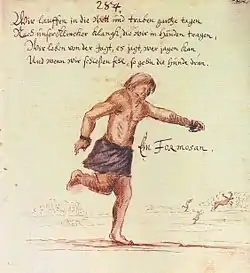 284
Wir lauffen in die Wett und traben gantze tagen
Nach unsers klanges, die wir in händen tragen,
Wir leben von der Jagt, es jagt, wer jagen kan,
Und wenn wir schiessen fehl, so gehn die Hunde dran.
Ein Formosan.